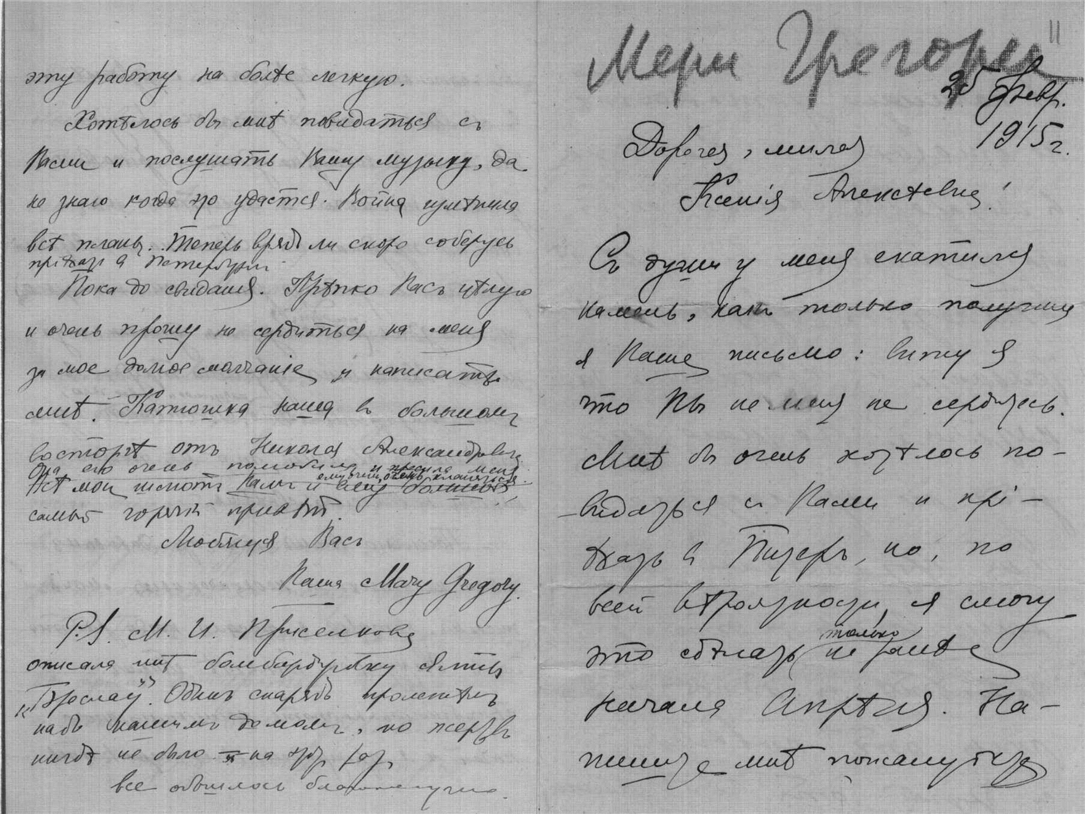 Мери Грегори
"
25 Февр.
1915 г.
Дорогая, милая
Ксенія Алексѣевна!
Съ души у меня скатился
камень, какъ только получила
я Ваше письмо: вижу я
что Вы на меня не сердитесь.
Мнѣ бы очень хотѣлось по-
-видаться съ Вами и прі-
ѣхать въ Питеръ, но, по
всей вѣроятности, я смогу
только
это сдѣлать не ранѣе
начала Апрѣля. На-
пишите мнѣ пожалуйста
эту работу на болѣе легкую.
Хотѣлось бы мнѣ повидаться съ
Вами и послушать Вашу музыку, да
не знаю когда это удастся. Война измѣнила
всѣ планы. Теперь врядъ ли скоро соберусь
пріѣхать въ Петербургъ.
Пока до свиданія. Крѣпко Васъ цѣлую
и очень прошу не сердиться на меня
за мое долгое молчаніе и написать
мнѣ. Катюшка наша въ большомъ
восторгѣ отъ Николая Александровича
Она его очень полюбила и просила меня
ему очень кланяться.
Всѣ мои шлютъ Вамъ и
самый горячій привѣтъ.
Любящая Васъ
Ваша Mary Gregory.
P.S. М. И. Приселкова
описала мнѣ бомбардировку
Одинъ снарядъ пролетѣлъ
надъ нашимъ домомъ, но жертвъ
нигдѣ не было и на этотъ разъ
все обошлось благополучно.